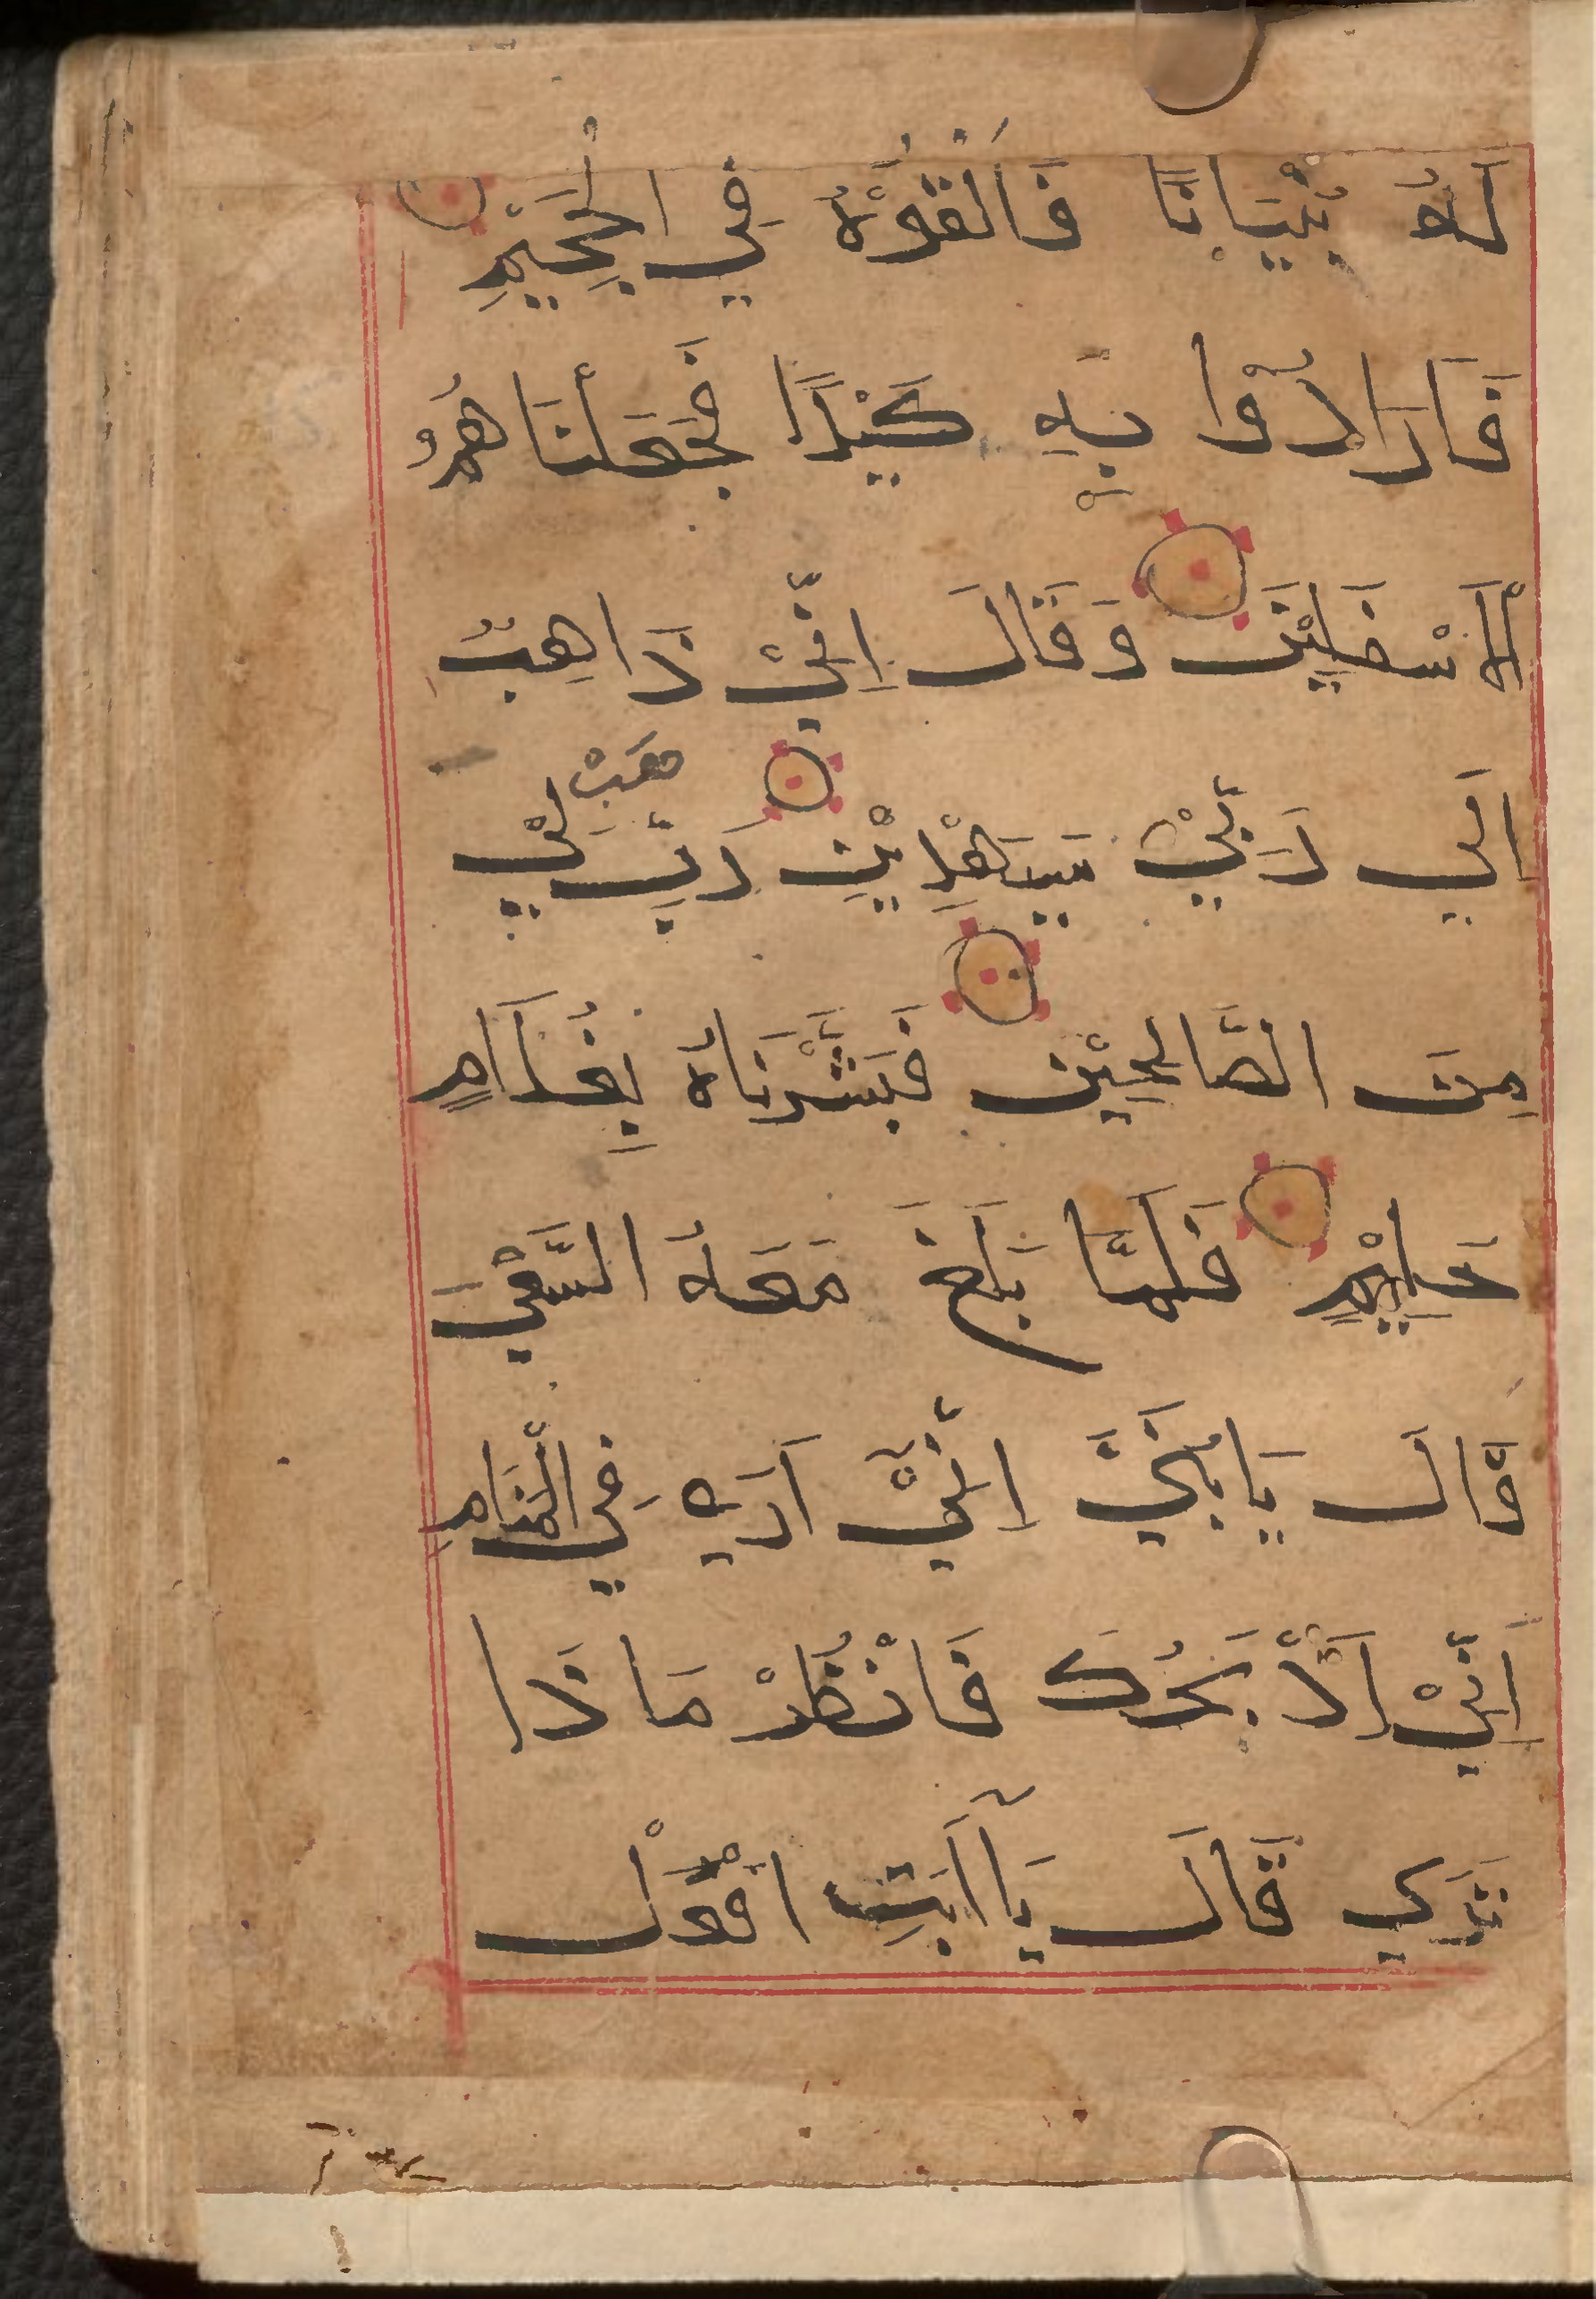 لَهُ بُنْيَانًا فَأَلْقُوْهُ فِي الْجَحِيْمِ
فَاَرَادُوْا بِهٖ كَيْدًا فَجَعَلْنَاهُمُ
الْاَسْفَلِيْنَ وَقَالَ اِنِّيْ ذَاهِبٌ
اِلَي رَبِّيْ سَيَهْدِيْنِ رَبِّ هَبْ لِيْ
مِنَ الصَّالِحِيْنَ فَبَشَّرْنَاهُ بِغُلَامٍ
حَلِيْمٍ فَلَمَّا بَلَغَ مَعَهُ السَّعْيَ
قَالَ يَابُنَيَّ اِنِّيْٓ اَرَي فِي الْمَنَامِ
اَنِّيْ اَذْبَحُكَ فَانْظُرْ مَاذَا
تَرَي قَالَ يَآاَبَتِ افْعَلْ